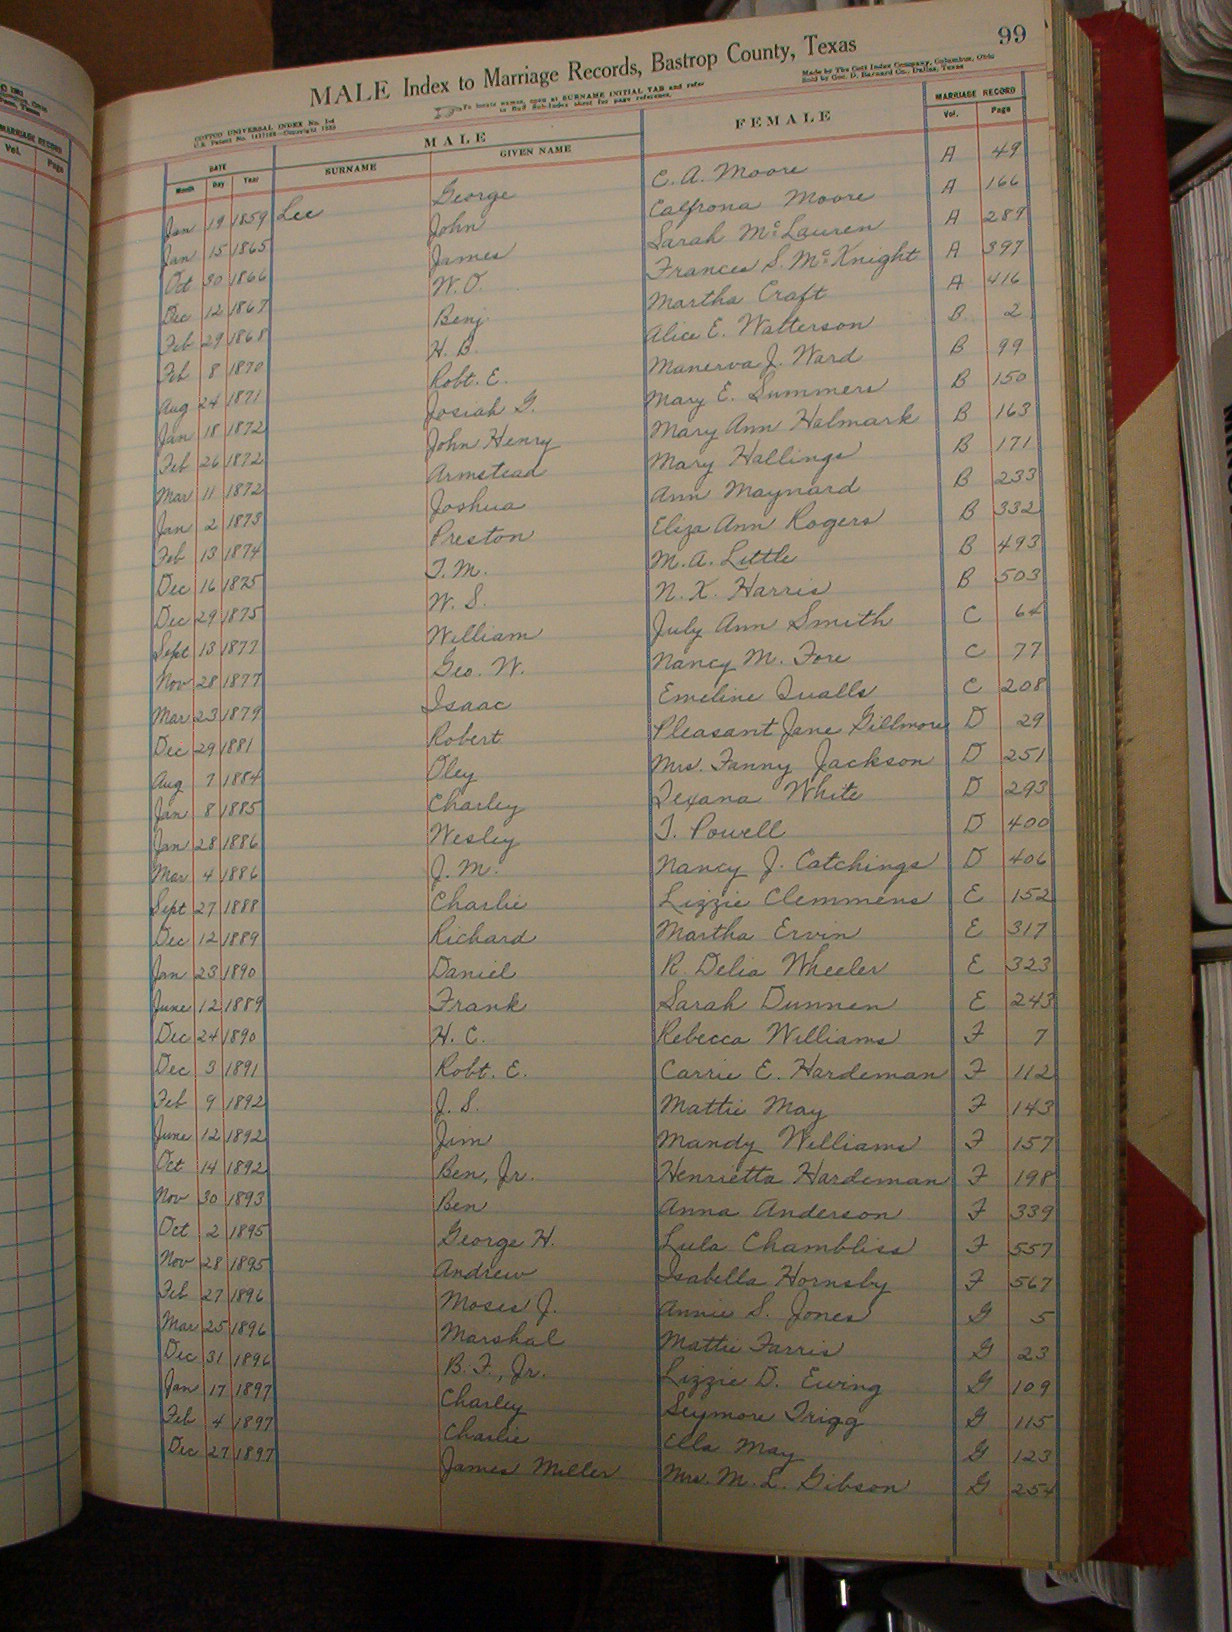 99
MALE Index to Marriage Records, Bastrop County, Texas
To locate names, open at SURNAME INITIAL TAB and refer
to Buff Sub-Index sheet for page reference.
Made by The Cott Index Company, Columbus, Ohio
Sold by Geo. D. Barnard Co., Dallas, Texas
COTTCO UNIVERSAL INDEX No.
U.S. Patent No. Copyright
DATE MALE FEMALE MARRIAGE RECORD
Month Day Year SURNAME GIVEN NAME Vol. Page
Jan 19 1859 Lee George C. A. Moore A 49
Jan 15 1865 John Calfrona Moore A 166
Oct 30 1866 James Sarah McLauren A 287
Dec 12 1867 W. O. Frances S. McKnight A 397
Feb 29 1868 Benj. Martha Craft A 416
Feb 8 1870 H. B. Alice E. Watterson B 2
Aug 24 1871 Robt. E. Manerva J. Ward B 99
Jan 18 1872 Josiah G. Mary E. Summers B 150
Feb 26 1872 John Henry Mary Ann Halmark B 163
Mar 11 1872 Armstead Mary Hallings B 171
Jan 2 1873 Joshua Ann Maynard B 233
Feb 13 1874 Preston Eliza Ann Rogers B 332
Dec 16 1875 T. M. M. A. Little B 493
Dec 29 1875 W. S. N. X. Harris B 503
Sept 13 1877 William July Ann Smith C 64
Nov 28 1877 Geo. W. Nancy M. Fore C 77
Mar 23 1879 Isaac Emeline Qualls C 208
Dec 29 1881 Robert Pleasant Jane Gillmore D 29
Aug 7 1884 Oley Mrs. Fanny Jackson D 251
Jan 8 1885 Charley Texana White D 293
Jan 28 1886 Wesley T. Powell D 400
Mar 4 1886 J. M. Nancy J. Catchings D 406
Sept 27 1888 Charlie Lizzie Clemmens E 152
Dec 12 1889 Richard Martha Ervin E 317
Jan 23 1890 Daniel R. Delia Wheeler E 323
June 12 1889 Frank Sarah Dunnen E 243
Dec 24 1890 H. C. Rebecca Williams F 7
Dec 3 1891 Robt. E. Carrie E. Hardeman F 112
Feb 9 1892 J. S. Mattie May F 143
June 12 1892 Jim Mandy Williams F 157
Oct 14 1892 Ben, Jr. Henrietta Hardeman F 198
Nov 30 1893 Ben Anna Anderson F 339
Oct 2 1895 George H. Lula Chambliss F 557
Nov 28 1895 Andrew Isabella Hornsby F 567
Feb 27 1896 Moses J. Annie S. Jones G 5
Mar 25 1896 Marshal Mattie Farris G 23
Dec 31 1896 B. F., Jr. Lizzie D. Ewing G 109
Jan 17 1897 Charley Seymore Trigg G 115
Feb 4 1897 Charlie Ella May G 123
Dec 27 1897 James Miller Mrs. M. L. Gibson G 254
MARRIAGE RECORD
Vol. Page